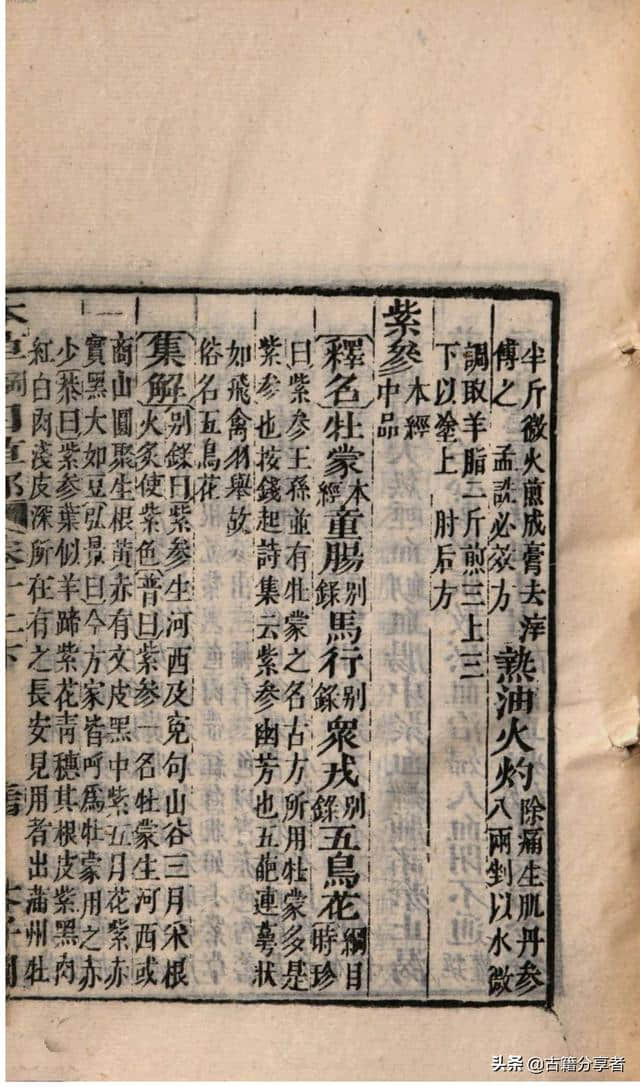 半斤微火煎成膏去滓
傅之 孟詵必效方
熱油火灼
除痛生肌丹參
八兩剉以水微
調取羊脂二斤煎三上三
下以塗上 肘后方
紫參
本經
中品
釋名 牡蒙本經 童腸別錄 馬行別錄 衆戎別錄 五鳥花綱目 時珍
曰紫參王孫並有牡蒙之名古方所用牡蒙多是
紫參也按錢起詩集云紫參幽芳也五葩連萼狀
如飛禽羽舉故
俗名五鳥花
集解
別錄曰紫參生河西及冤句山谷三月采根
火炙使紫色普曰紫參一名牡蒙生河西或
商山圓聚生根黃赤有文皮黑中紫五月花紫赤
實黑大如豆弘景曰今方家皆呼爲牡蒙用之亦
少恭曰紫參葉似羊蹄紫花青穗其根皮紫黑肉
紅白肉淺皮深所在有之長安見用者出蒲州牡
头条 @古籍分享者